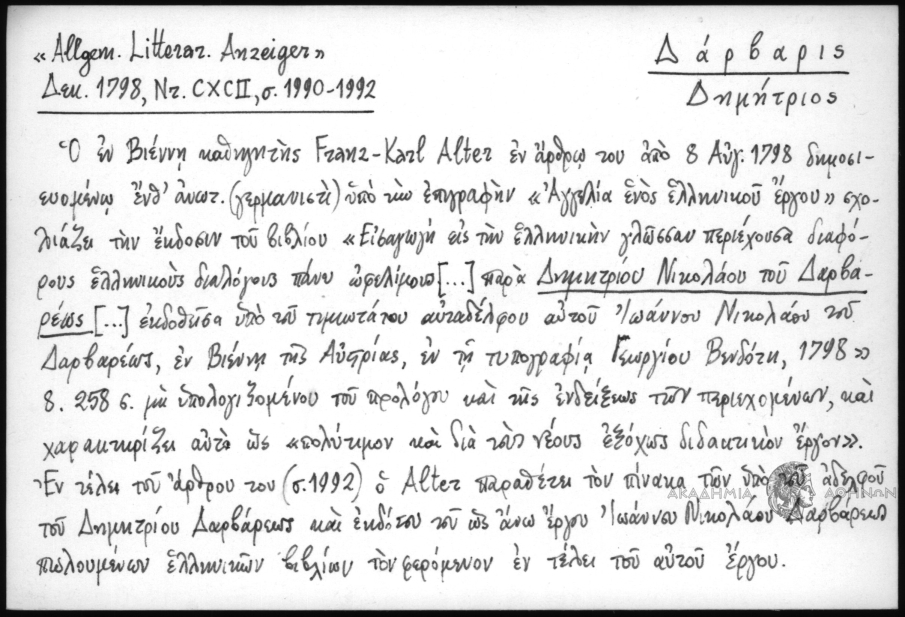 «Allgem. Litterar. Anzeiger»
Δεκ. 1798, Nr. CXCII, σ. 1990-1992
Δάρβαρις
Δημήτριος
Ὁ ἐν Βιέννῃ καθηγητὴς Franz-Karl Alter ἐν ἄρθρῳ του ἀπὸ 8 Αὐγ. 1798 δημοσι-
ευομένῳ ἔνθ' ἀνωτ. (γερμανιστὶ) ὑπὸ τὴν ἐπιγραφὴν «Ἀγγελία ἑνὸς ἑλληνικοῦ ἔργου» σχο-
λιάζει τὴν ἔκδοσιν τοῦ βιβλίου «Εἰσαγωγὴ εἰς τὴν ἑλληνικὴν γλῶσσαν περιέχουσα διαφό-
ρους ἑλληνικοὺς διαλόγους πάνυ ὠφελίμους [...] παρὰ Δημητρίου Νικολάου τοῦ Δαρβα-
ρέως [...] ἐκδοθεῖσα ὑπὸ τοῦ τιμιωτάτου αὐταδέλφου αὐτοῦ Ἰωάννου Νικολάου τοῦ
Δαρβαρέως, ἐν Βιέννῃ τῆς Αὐστρίας, ἐν τῇ τυπογραφίᾳ Γεωργίου Βενδότη, 1798»
8. 258 σ. μὴ ὑπολογιζομένου τοῦ προλόγου καὶ τῆς ἐνδείξεως τῶν περιεχομένων, καὶ
χαρακτηρίζει αὐτὸ ὡς «πολύτιμον καὶ διὰ τοὺς νέους ἐξόχως διδακτικὸν ἔργον».
Ἐν τέλει τοῦ ἄρθρου του (σ. 1992) ὁ Alter παραθέτει τὸν πίνακα τῶν ὑπὸ τοῦ ἀδελφοῦ
τοῦ Δημητρίου Δαρβάρεως καὶ ἐκδότου τοῦ ὡς ἄνω ἔργου Ἰωάννου Νικολάου Δαρβάρεως
πωλουμένων ἑλληνικῶν βιβλίων τὸν φερόμενον ἐν τέλει τοῦ αὐτοῦ ἔργου.
ΑΚΑΔΗΜΙΑ ΑΘΗΝΩΝ